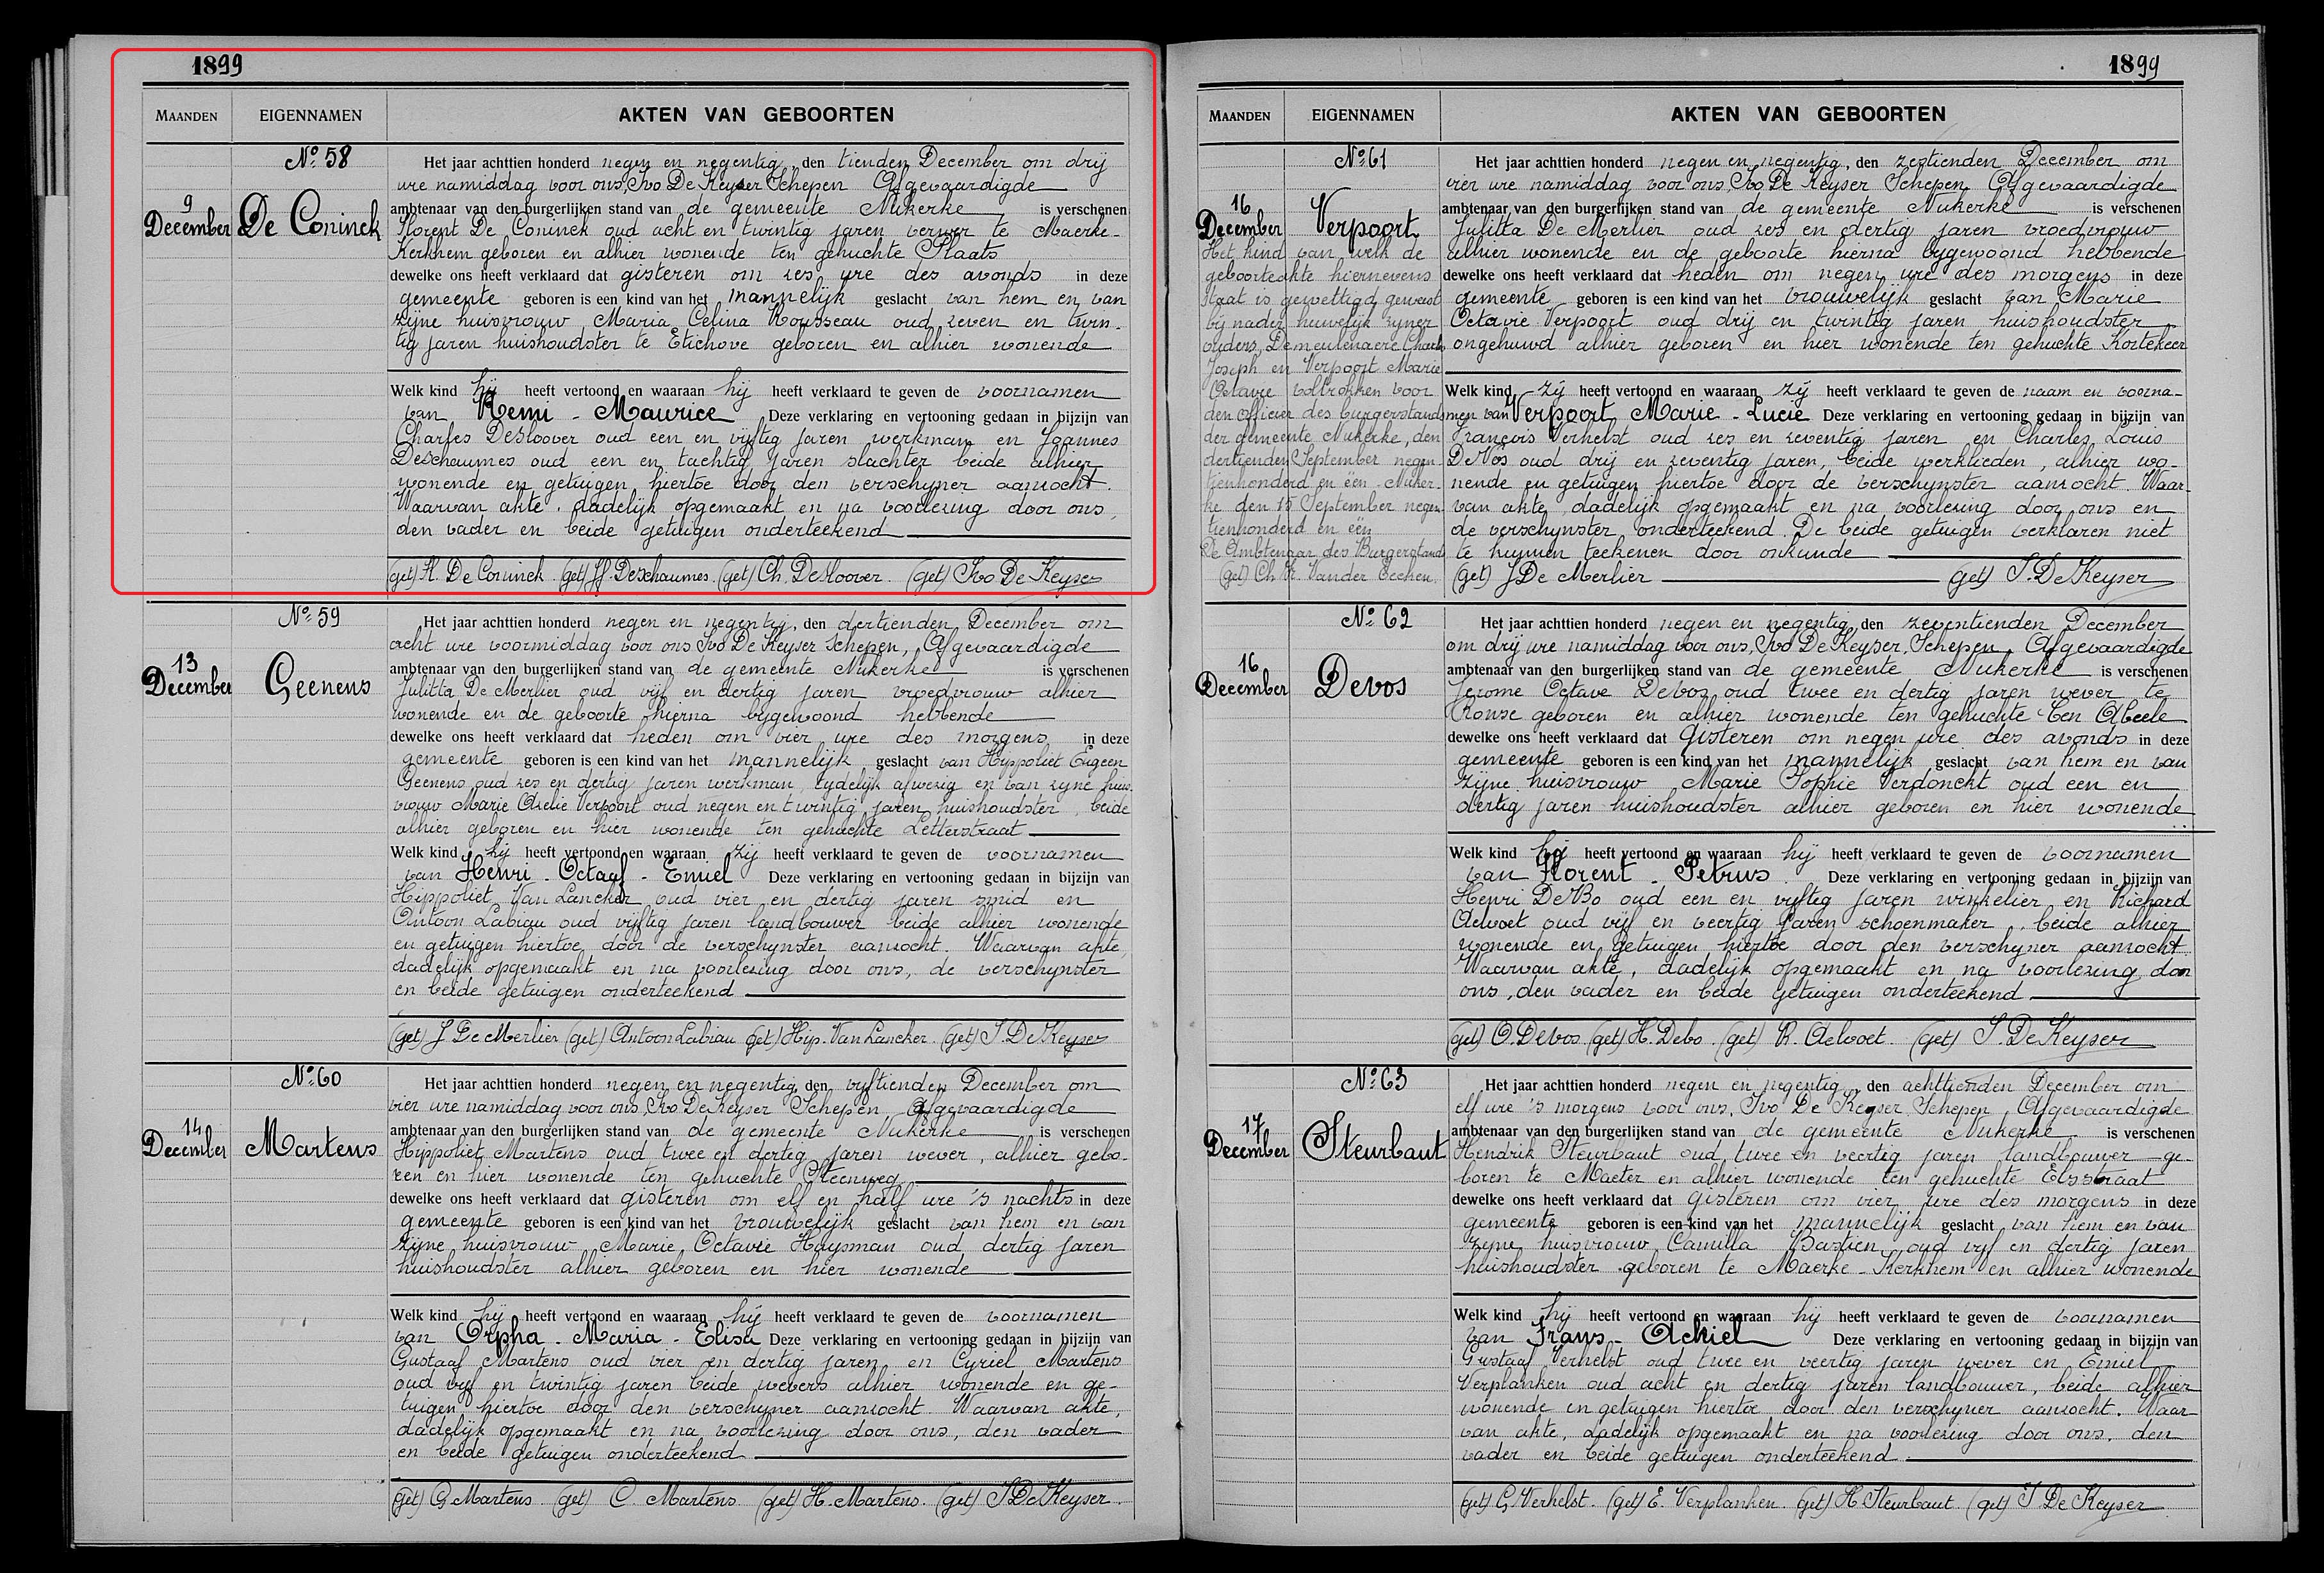 1899
MAANDEN EIGENNAMEN AKTEN VAN GEBOORTEN
No. 58
9 December
De Coninck
Het jaar achttien honderd negen en negentig, den tienden December om drij
ure namiddag voor ons, Ivo De Keyser Schepen Afgevaardigde
ambtenaar van den burgerlijken stand van de gemeente Nukerke is verschenen
Florent De Coninck oud acht en twintig jaren verwer te Maerke-
Kerkhem geboren en alhier wonende ten gehuchte Plaats
dewelke ons heeft verklaard dat gisteren om zes ure des avonds in deze
gemeente geboren is een kind van het mannelijk geslacht van hem en van
zijne huisvrouw Maria Celina Rousseau oud zeven en twin-
tig jaren huishoudster te Etichove geboren en alhier wonende
Welk kind hij heeft vertoond en waaraan hij heeft verklaard te geven de voornamen
van Remi - Maurice Deze verklaring en vertooning gedaan in bijzijn van
Charles Desloover oud een en vijftig jaren werkman en Joannes
Deschaumes oud een en tachtig jaren slachter beide alhier
wonende en getuigen hiertoe door den verschyner aanzocht.
Waarvan akte, dadelijk opgemaakt en na voorlezing door ons,
den vader en beide getuigen onderteekend
(get) Fl. De Coninck (get) JF. Deschaumes (get) Ch. Desloover (get) Ivo De Keyser
No. 59
13 December
Geenens
Het jaar achttien honderd negen en negentig, den dertienden December om
acht ure voormiddag voor ons Ivo De Keyser Schepen, Afgevaardigde
ambtenaar van den burgerlijken stand van de gemeente Nukerke is verschenen
Julitta De Merlier oud vijf en dertig jaren vroedvrouw alhier
wonende en de geboorte hierna bygewoond hebbende
dewelke ons heeft verklaard dat heden om vier ure des morgens in deze
gemeente geboren is een kind van het mannelijk geslacht van Hippoliet Eugeen
Geenens oud zes en dertig jaren werkman, tydelijk afwezig en van zyne huis-
vrouw Marie Oxelie Verpoort oud negen en twintig jaren huishoudster, beide
alhier geboren en hier wonende ten gehuchte Letterstraat
Welk kind zij heeft vertoond en waaraan zij heeft verklaard te geven de voornamen
van Henri - Octaaf - Emiel Deze verklaring en vertooning gedaan in bijzijn van
Hippoliet Van Lancker oud vier en dertig jaren smid en
Antoon Labiau oud vijftig jaren landbouwer beide alhier wonende
en getuigen hiertoe door de verschynster aanzocht. Waarvan akte,
dadelijk opgemaakt en na voorlezing door ons, de verschynster
en beide getuigen onderteekend
(get) J De Merlier (get) Antoon Labiau (get) Hip. Van Lancker (get) I. De Keyser
No. 60
14 December
Martens
Het jaar achttien honderd negen en negentig, den vijftienden December om
vier ure namiddag voor ons, Ivo De Keyser Schepen Afgevaardigde
ambtenaar van den burgerlijken stand van de gemeente Nukerke is verschenen
Hippoliet Martens oud twee en dertig jaren wever, alhier gebo-
ren en hier wonende ten gehuchte Steenweg
dewelke ons heeft verklaard dat gisteren om elf en half ure 's nachts in deze
gemeente geboren is een kind van het vrouwelijk geslacht van hem en van
zijne huisvrouw Marie Octavie Haysman oud dertig jaren
huishoudster alhier geboren en hier wonende
Welk kind hij heeft vertoond en waaraan hij heeft verklaard te geven de voornamen
van Orpha - Maria - Elisa Deze verklaring en vertooning gedaan in bijzijn van
Gustaaf Martens oud vier en dertig jaren en Cyriel Martens
oud vijf en twintig jaren beide wevers alhier wonende en ge-
tuigen hiertoe door den verschyner aanzocht Waarvan akte,
dadelijk opgemaakt en na voorlezing door ons, den vader
en beide getuigen onderteekend
(get) G Martens (get) C. Martens (get) H. Martens. (get) I De Keyser.
1899
MAANDEN EIGENNAMEN AKTEN VAN GEBOORTEN
No. 61
16 December
Verpoort
Het kind van welk de
geboorteakte hiernevens
staat is gewettigd geweest
bij nader huwelijk zyner
ouders, Demeulenaere Charles
Joseph en Verpoort Marie
Octavie voltrokken voor
den Officier des Burgerstands
der gemeente Nukerke, den
dertienden September negen
tienhonderd en één Nuker-
ke den 15 September negen
tienhonderd en één
De Ambtenaar des Burgerstand
(get) Ch R. Vander Eecken.
Het jaar achttien honderd negen en negentig, den zestienden December om
vier ure namiddag voor ons, Ivo De Keyser Schepen Afgevaardigde
ambtenaar van den burgerlijken stand van de gemeente Nukerke is verschenen
Julitta De Merlier oud zes en dertig jaren vroedvrouw
alhier wonende en de geboorte hierna bygewoond hebbende
dewelke ons heeft verklaard dat heden om negen ure des morgens in deze
gemeente geboren is een kind van het vrouwelijk geslacht van Marie
Octavie Verpoort oud drij en twintig jaren huishoudster
ongehuwd alhier geboren en hier wonende ten gehuchte Kortekeer
Welk kind zij heeft vertoond en waaraan zij heeft verklaard te geven de naam en voorna-
men van Verpoort Marie - Lucie Deze verklaring en vertooning gedaan in bijzijn van
François Verhelst oud zes en zeventig jaren en Charles Louis
De Vos oud drij en zeventig jaren, beide werklieden, alhier wo-
nende en getuigen hiertoe door de verschynster aanzocht. Waar-
van akte, dadelijk opgemaakt en na voorlezing door ons en
de verschynster onderteekend. De beide getuigen verklaren niet
te kunnen teekenen door onkunde
(get) J De Merlier (get) I. De Keyser
No. 62
16 December
Devos
Het jaar achttien honderd negen en negentig, den zeventienden December
om drij ure namiddag voor ons, Ivo De Keyser, Schepen, Afgevaardigde
ambtenaar van den burgerlijken stand van de gemeente Nukerke is verschenen
Jerome Octave Devos oud twee en dertig jaren wever te
Ronse geboren en alhier wonende ten gehuchte Ten Abeele
dewelke ons heeft verklaard dat Gisteren om negen ure des avonds in deze
gemeente geboren is een kind van het mannelijk geslacht van hem en van
zijne huisvrouw Marie Sophie Verdonckt oud een en
dertig jaren huishoudster alhier geboren en hier wonende
Welk kind hij heeft vertoond en waaraan hij heeft verklaard te geven de voornamen
van Florent - Petrus. Deze verklaring en vertooning gedaan in bijzijn van
Henri De Bo oud een en vijftig jaren winkelier en Richard
Aelvoet oud vijf en veertig jaren schoenmaker, beide alhier
wonende en getuigen hiertoe door den verschyner aanzocht
Waarvan akte, dadelijk opgemaakt en na voorlezing door
ons, den vader en beide getuigen onderteekend
(get) O. Devos (get) H. Debo. (get) R. Aelvoet. (get) I. De Keyser
No. 63
17 December
Steurbaut
Het jaar achttien honderd negen en negentig, den achttienden December om
elf ure 's morgens voor ons, Ivo De Keyser Schepen, Afgevaardigde
ambtenaar van den burgerlijken stand van de gemeente Nukerke is verschenen
Hendrik Steurbaut oud twee en veertig jaren landbouwer ge-
boren te Maeter en alhier wonende ten gehuchte Elsstraat
dewelke ons heeft verklaard dat gisteren om vier ure des morgens in deze
gemeente geboren is een kind van het mannelijk geslacht van hem en van
zyne huisvrouw Camilla Bastien oud vijf en dertig jaren
huishoudster geboren te Maerke-Kerkhem en alhier wonende
Welk kind hij heeft vertoond en waaraan hij heeft verklaard te geven de voornamen
van Frans - Achiel Deze verklaring en vertooning gedaan in bijzijn van
Gustaaf Verhelst oud twee en veertig jaren wever en Emiel
Verplanken oud acht en dertig jaren landbouwer, beide alhier
wonende en getuigen hiertoe door den verschyner aanzocht. Waar
van akte, dadelijk opgemaakt en na voorlezing door ons, den
vader en beide getuigen onderteekend.
(get) G. Verhelst. (get) E. Verplanken. (get) H. Steurbaut (get) I De Keyser